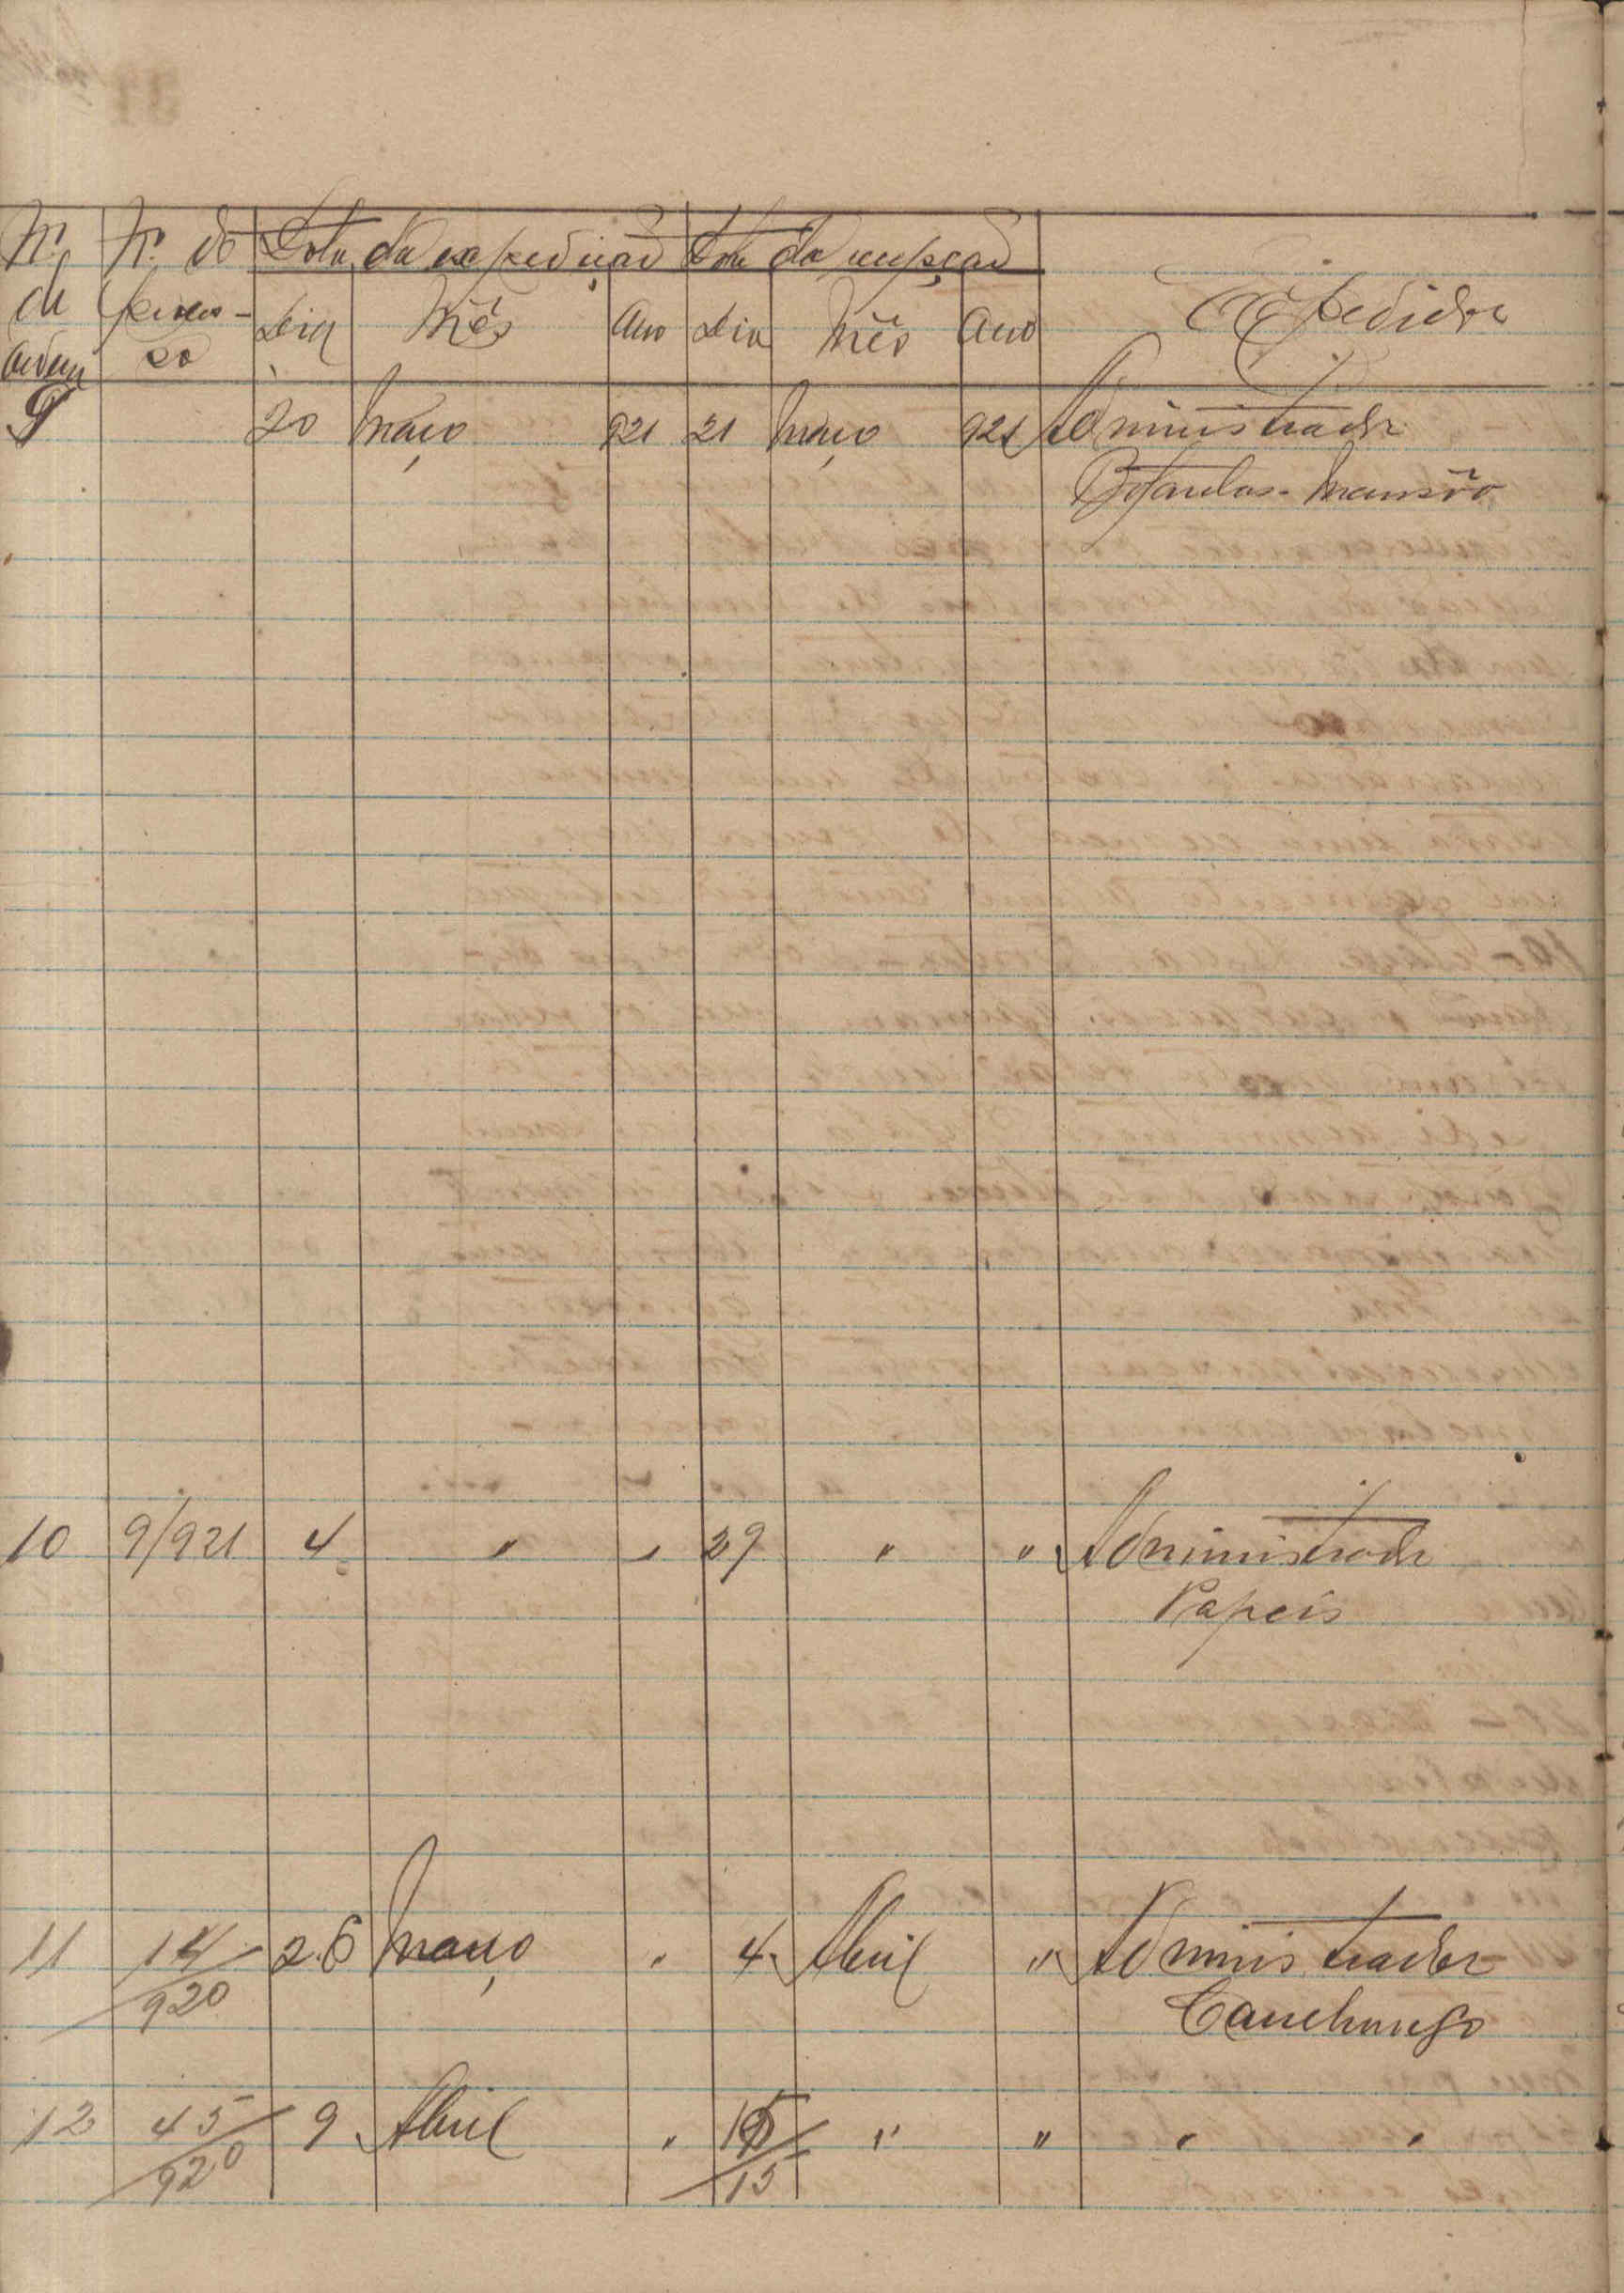 Nº Nº do Data da expedição Data da recepção
de proces- Dia Mês Ano Dia Mês Ano Expedidor
ordem so
9 20 Março 921 21 Março 921 Administrador
Mansôa
10 9/921 4 " " 29 " " Administrador
Papeis
11 14/920 26 Março " 4 Abril " Administrador
Canchungo
12 45/920 9 Abril " 15 " " " "
15